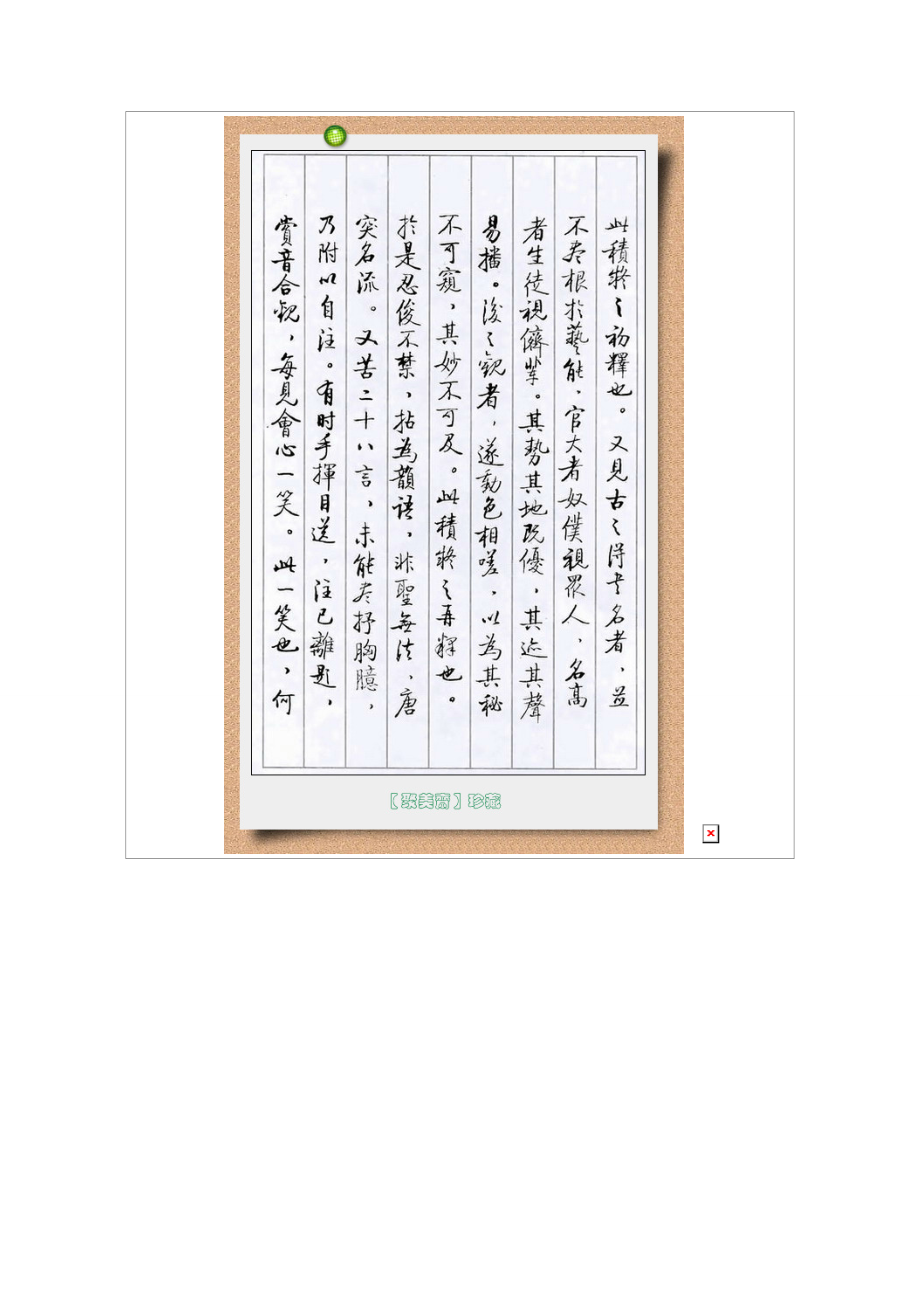 此積疑之初釋也。又見古之得書名者，並
不盡根於藝能，官大者奴僕視眾人，名高
者生徒視儕輩。其勢其地既優，其迹其聲
易播。後之觀者，遂動色相嗟，以為其秘
不可窺，其妙不可及。此積疑之再釋也。
於是忍俊不禁，拈為韻語，非聖無法，唐
突名流。又苦二十八言，未能盡抒胸臆，
乃附以自注。有时手揮目送，注已離題，
賞音合觀，每見會心一笑。此一笑也，何
〖聚美齋〗珍藏